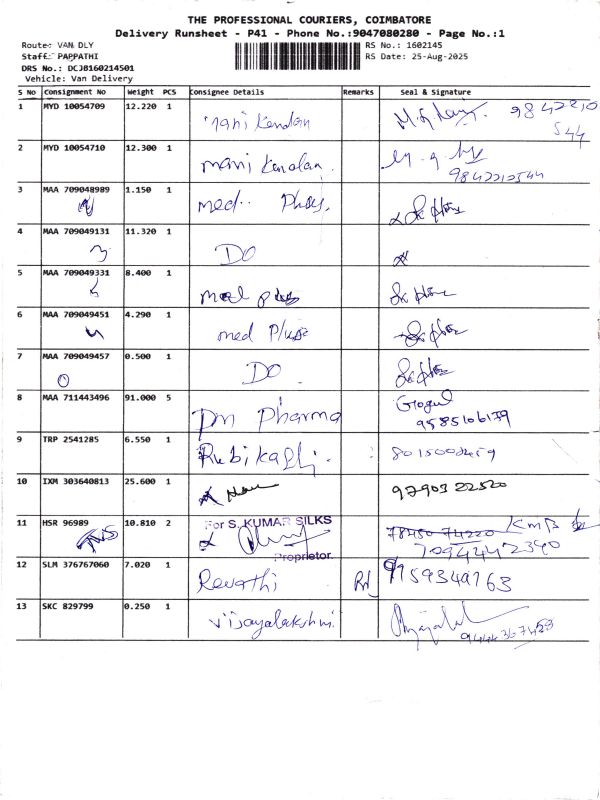 THE PROFESSIONAL COURIERS, COIMBATORE
Delivery Runsheet - P41 - Phone No.:9047080280 - Page No.:1
Route: VAN DLY RS No.: 1602145
Staff: PAPPATHI RS Date: 25-Aug-2025
DRS No.: DCJB160214501
Vehicle: Van Delivery
S No Consignment No Weight PCS Consignee Details Remarks Seal & Signature
1 MYD 10054709 12.220 1 mani Kandan 9842210
544
2 MYD 10054710 12.300 1 mani Kandan. 9842212544
3 MAA 709048989 1.150 1 med.. Plus,
4 MAA 709049131 11.320 1 DO
5 MAA 709049331 8.400 1 med plus
6 MAA 709049451 4.290 1 med Pluse
7 MAA 709049457 0.500 1 DO
8 MAA 711443496 91.000 5 Pm Pharma Gogul
9585106179
9 TRP 2541285 6.550 1 8015002459
10 IXM 303640813 25.600 1 9790322520
11 HSR 96989 10.810 2 For S. KUMAR SILKS 78450 74220 KMB
Proprietor. 7094442340
12 SLM 376767060 7.020 1 Revathi 9159349163
13 SKC 829799 0.250 1 vijayalakshmi
9444367453